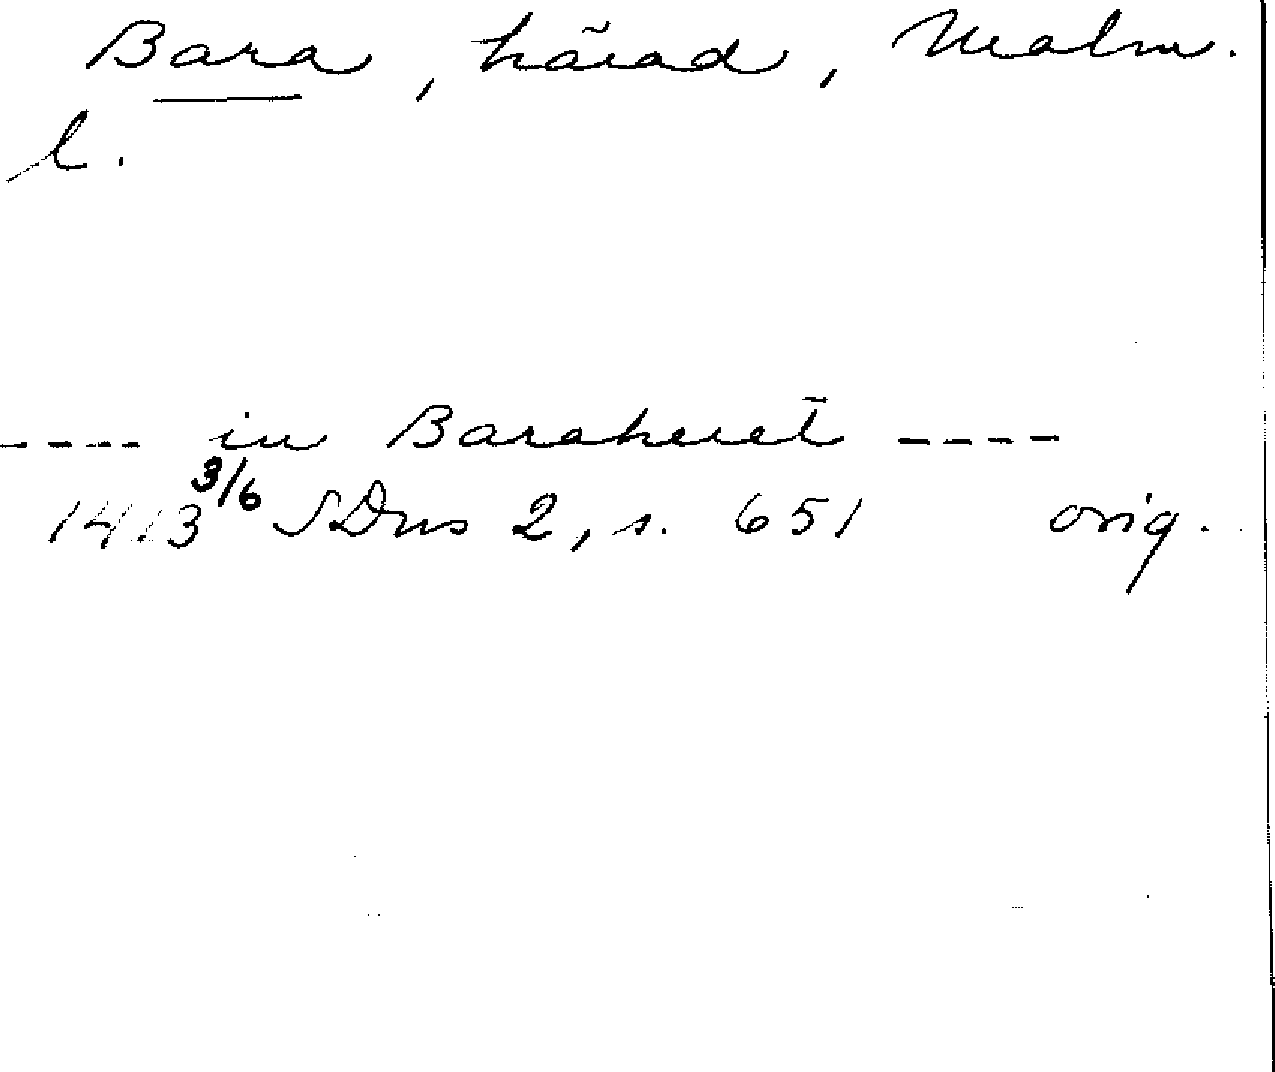 Bara, härad, Malm.
l.
---- in Baraheret̄ ----
1413 3/6 SDns 2, s. 651 orig.